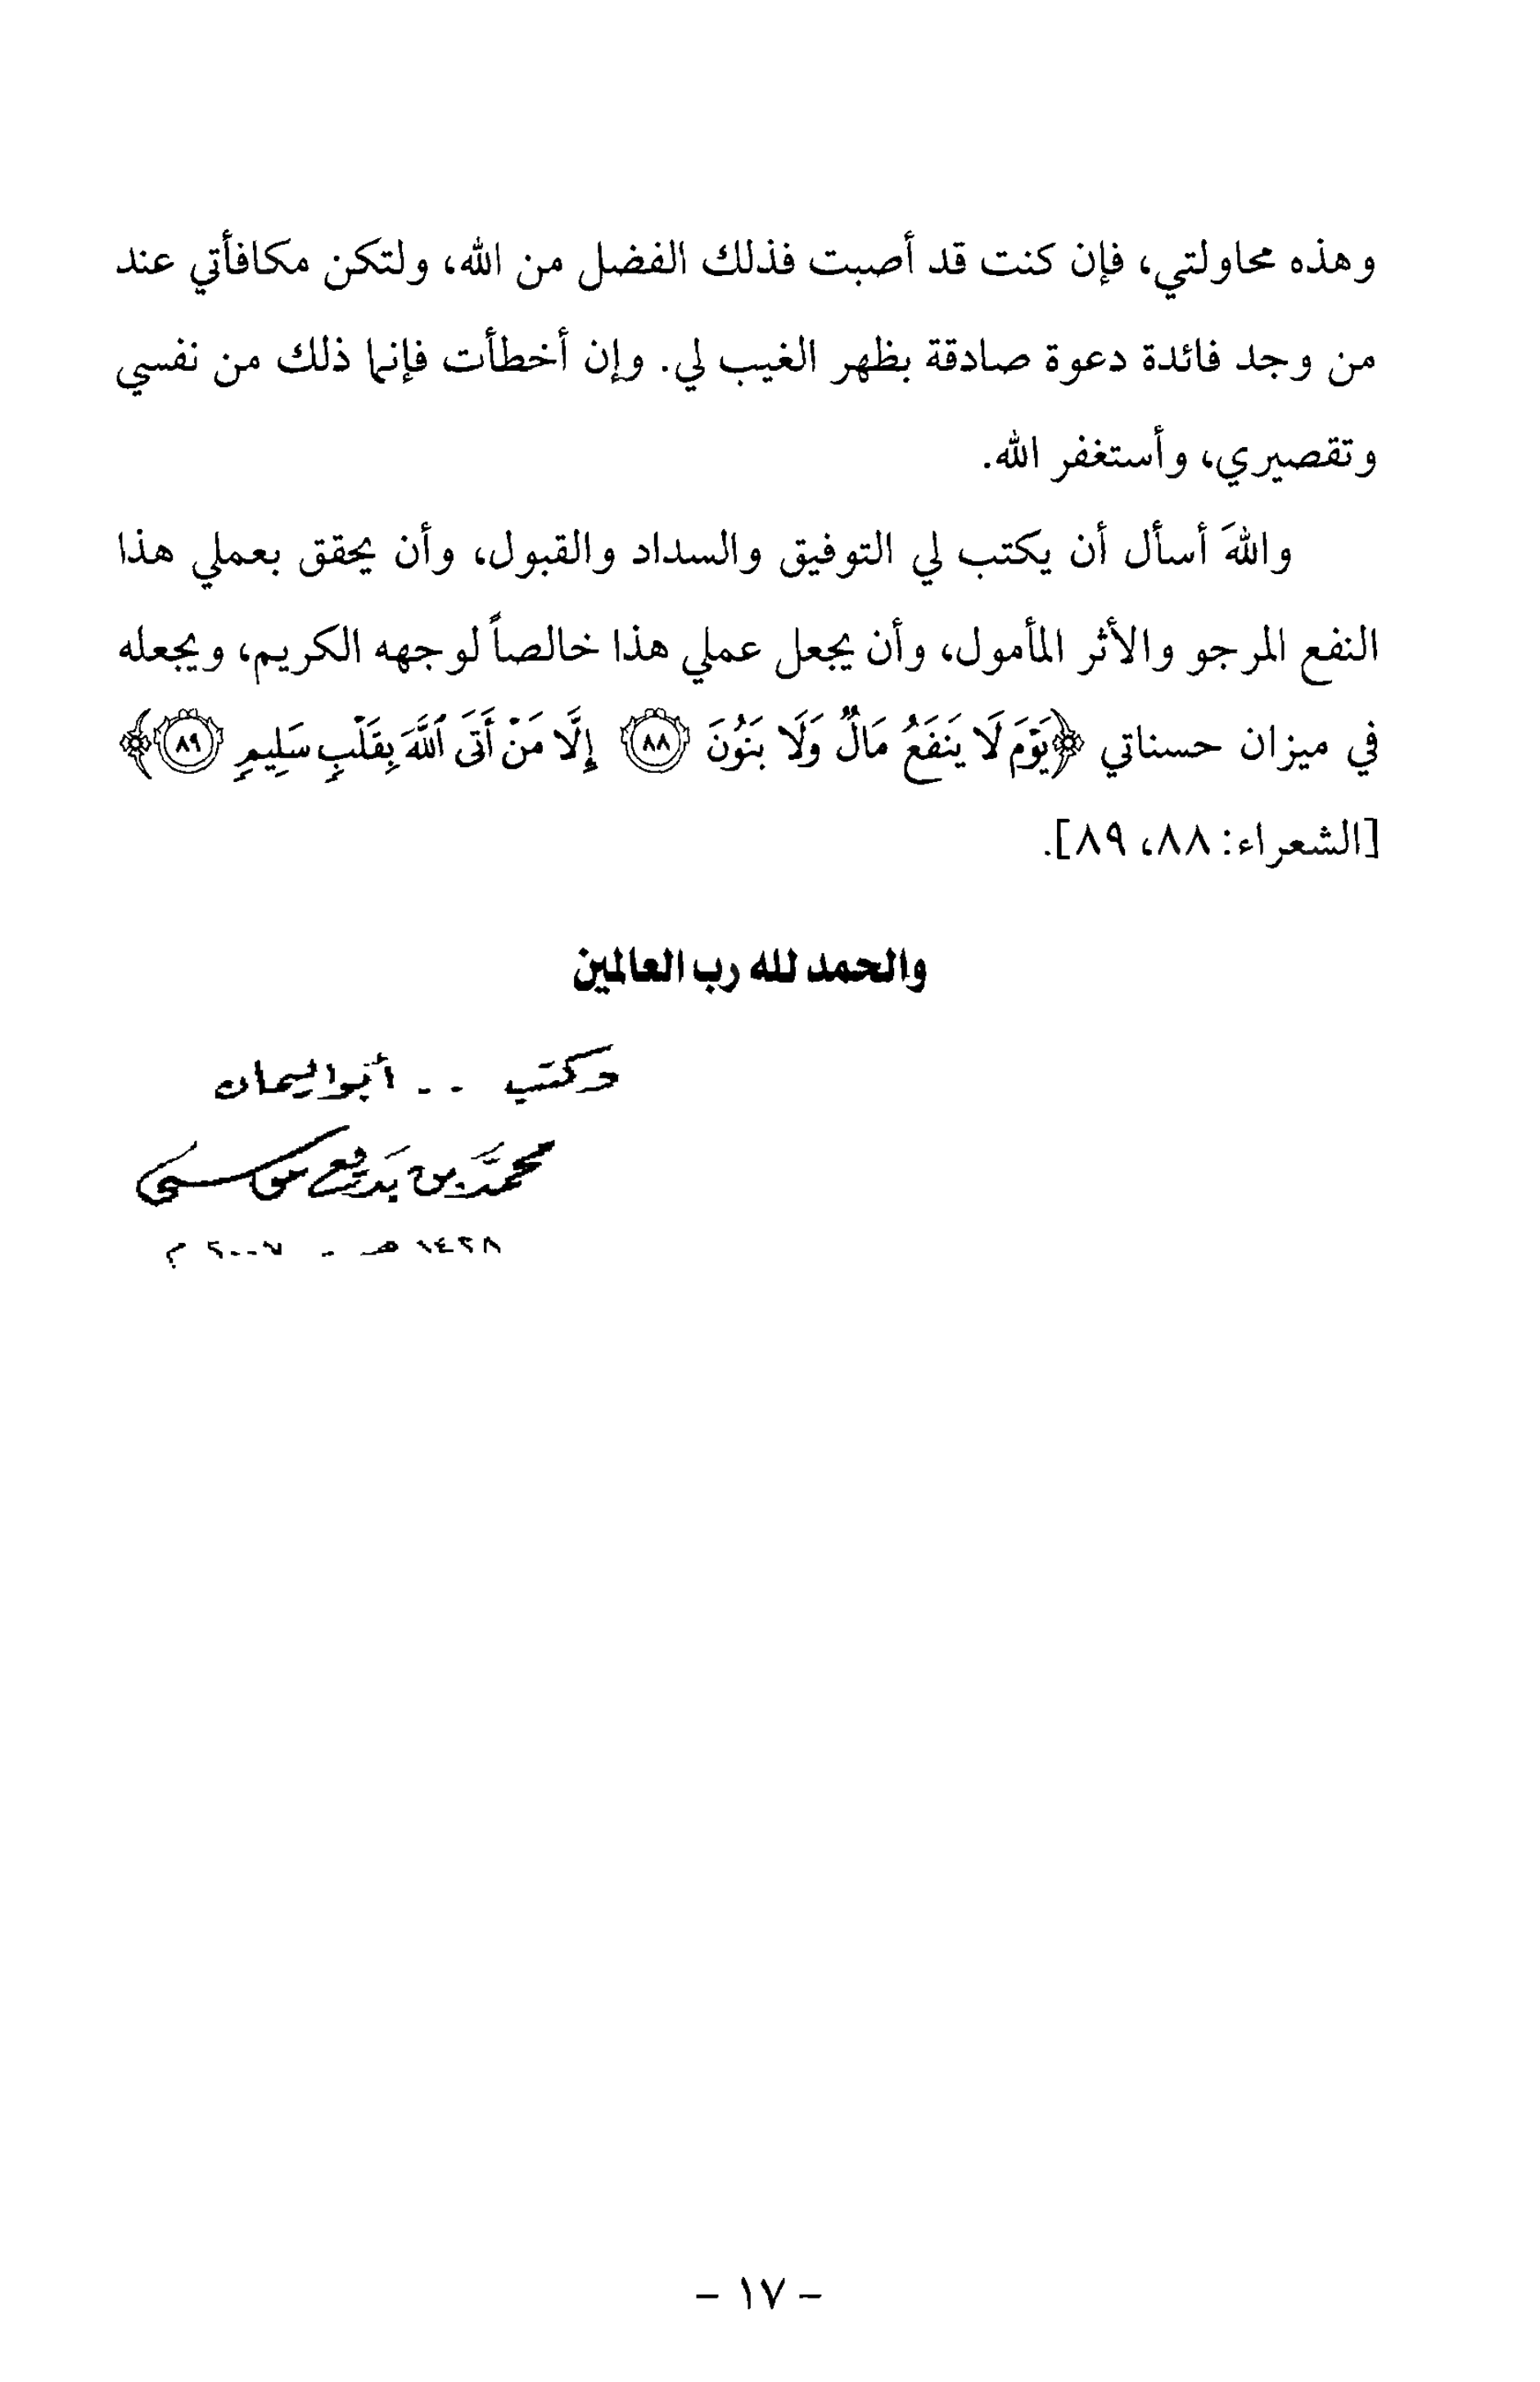 وهذه محاولتي، فإن كنت قد أصبت فذلك الفضل من الله، ولتكن مكافأتي عند
من وجد فائدة دعوة صادقة بظهر الغيب لي. وإن أخطأت فإنما ذلك من نفسي
وتقصيري، وأستغفر الله.
واللهَ أسأل أن يكتب لي التوفيق والسداد والقبول، وأن يحقق بعملي هذا
النفع المرجو والأثر المأمول، وأن يجعل عملي هذا خالصاً لوجهه الكريم، ويجعله
في ميزان حسناتي ﴿يَوْمَ لَا يَنفَعُ مَالٌ وَلَا بَنُونَ ٨٨ إِلَّا مَنْ أَتَى ٱللَّهَ بِقَلْبٍ سَلِيمٍ ٨٩﴾
[الشعراء: ٨٨، ٨٩].
والحمد لله رب العالمين
وكتب . . أبو اليمان
محمد بن بديع موسى
١٤٢٨ هـ - ٢٠٠٧ م
- ١٧ -